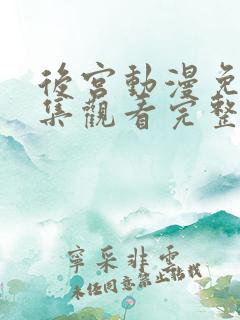 後宮動漫免
集觀看完整
寧采非雲
未經同意禁止轉載